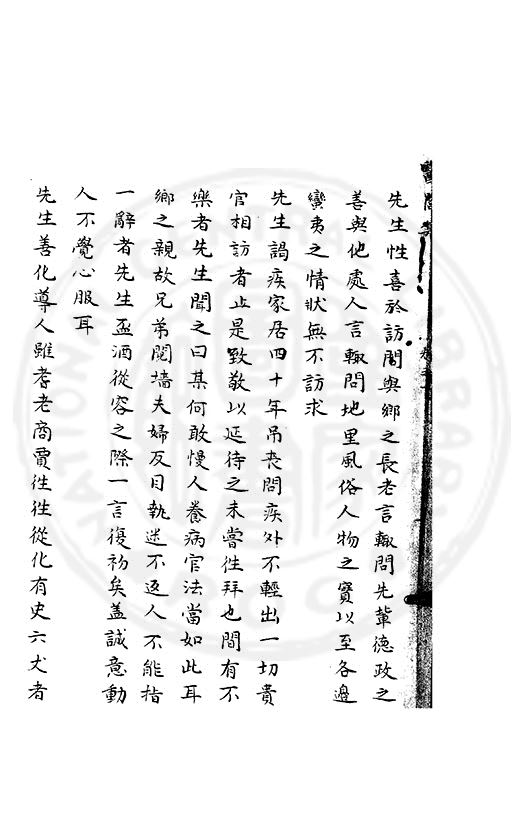 先生性喜於訪問與鄉之長老言輒問先輩德政之
善與他處人言輒問地里風俗人物之實以至各邊
蠻夷之情狀無不訪求
先生謁疾家居四十年吊丧問疾外不輕出一切貴
官相訪者止是致敬以延待之未嘗徃拜也間有不
樂者先生聞之曰某何敢慢人養病官法當如此耳
鄉之親故兄弟鬩墻夫婦反目執迷不返人不能指
一辭者先生盃酒從容之際一言復初矣盖誠意動
人不覺心服耳
先生善化導人雖孝老商賈徃徃從化有史六丈者